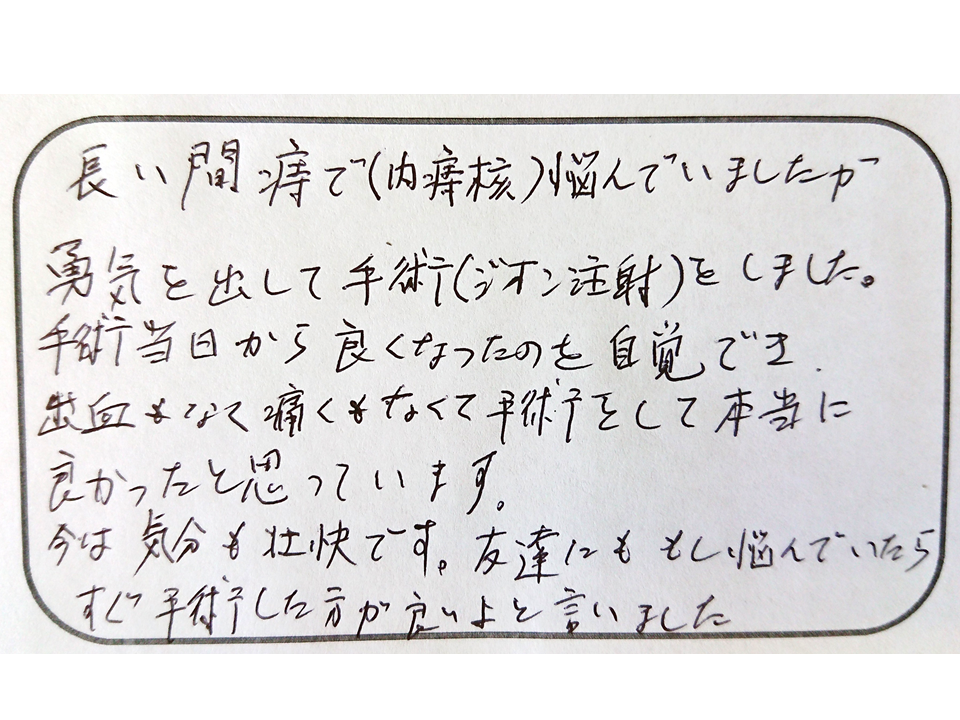 長い間痔で(内痔核)悩んでいましたが
勇気を出して手術(ジオン注射)をしました。
手術当日から良くなったのを自覚でき
出血もなく痛くもなくて手術をして本当に
良かったと思っています。
今は気分も壮快です。友達にももし悩んでいたら
すぐ手術した方が良いよと言いました